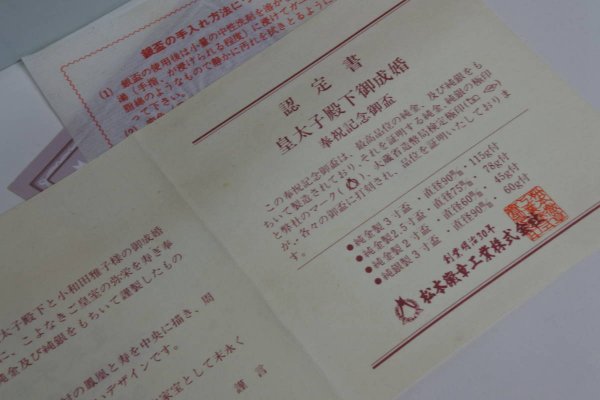 銀盃の手入れ方法につ
(1) 銀盃の使用後は小量の中性洗剤を溶か
湯（手指が漬けられる程度）に漬けてガー
脱綿のようなもので静かに汚れを拭きとるように
って
認定書
皇太子殿下御成婚
奉祝記念御盃
この奉祝記念御盃は、最高品位の純金、及び純銀をも
ちいて製造されており、それを証明する純金、純銀の極印
と弊社のマーク( )、大蔵省造幣局検定極印( )
が、各々の御盃に打刻され、品位を証明いたしておりま
す。
●純金製3寸盃・直径90㎜・115g付
●純金製2.5寸盃・直径75㎜・78g付
●純金製2寸盃・直径60㎜・45g付
●純銀製3寸盃・直径90㎜・60g付
創業明治30年
松本徽章工業株式会社
太子殿下と小和田雅子様の御成婚
に、こよなきご皇室の弥栄を寿ぎ奉
純金及び純銀をもちいて謹製したもの
の鳳凰と寿を中央に描き、周
いデザインです。
家宝として末永く
謹言